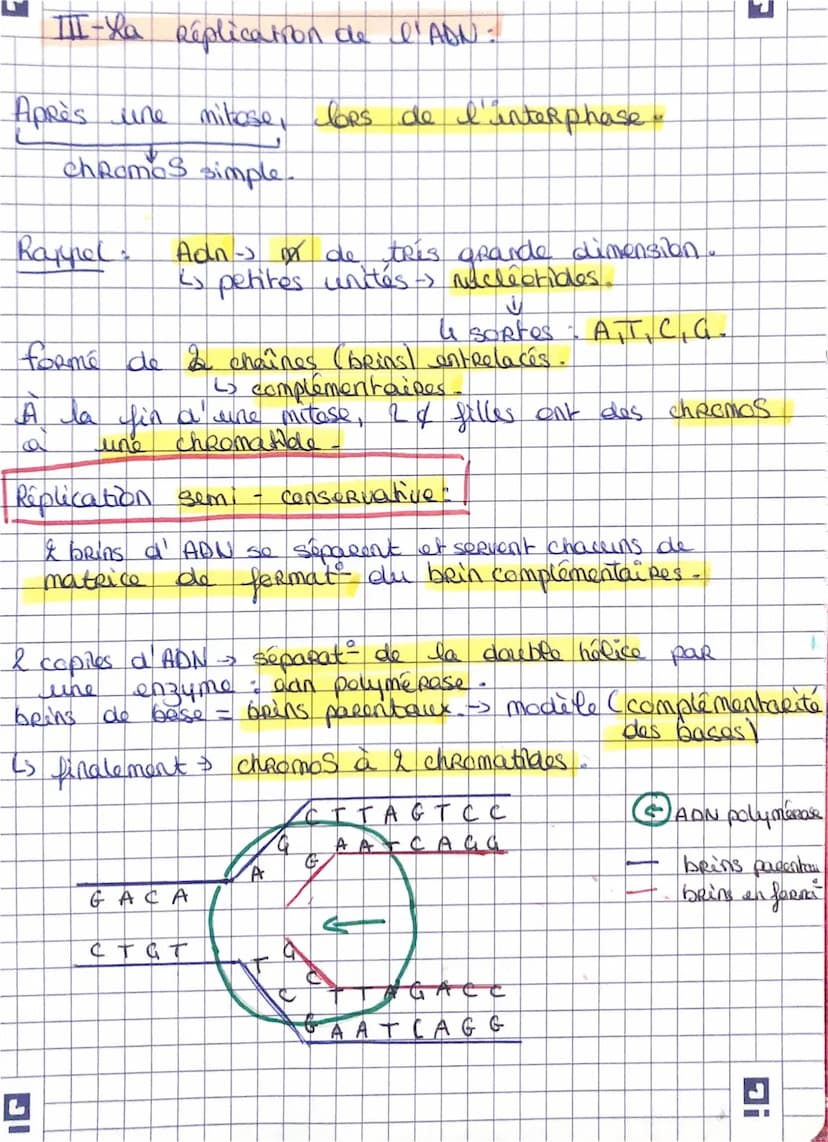 III- La Réplication de l'ADN :
Après une mitose, lors de l'interphase.
chromos simple.
Rappel : Adn → de très grande dimension.
↳ petites unités → nucléotides.
↓
4 sortes : A, T, C, G.
formé de 2 chaînes (brins) entrelacés.
↳ complémentaires.
À la fin d'une mitose, 2 ¢ filles ont des chromos
à une chromatide.
Réplication semi-conservative :
2 brins d'ADN se séparent et servent chacuns de
matrice de format° du brin complémentaires.
2 copies d'ADN → séparat° de la double hélice par
une enzyme : adn polymérase.
brins de base = brins parentaux. → modèle (complémentarité
des bases)
↳ finalement → chromos à 2 chromatides.
C T T A G T C C
G G A A T C A G G
A
G A C A
←
C T G T
T G
C C T T A G A C C
G A A T C A G G
← ADN polymérase
brins parentau
brins en format°